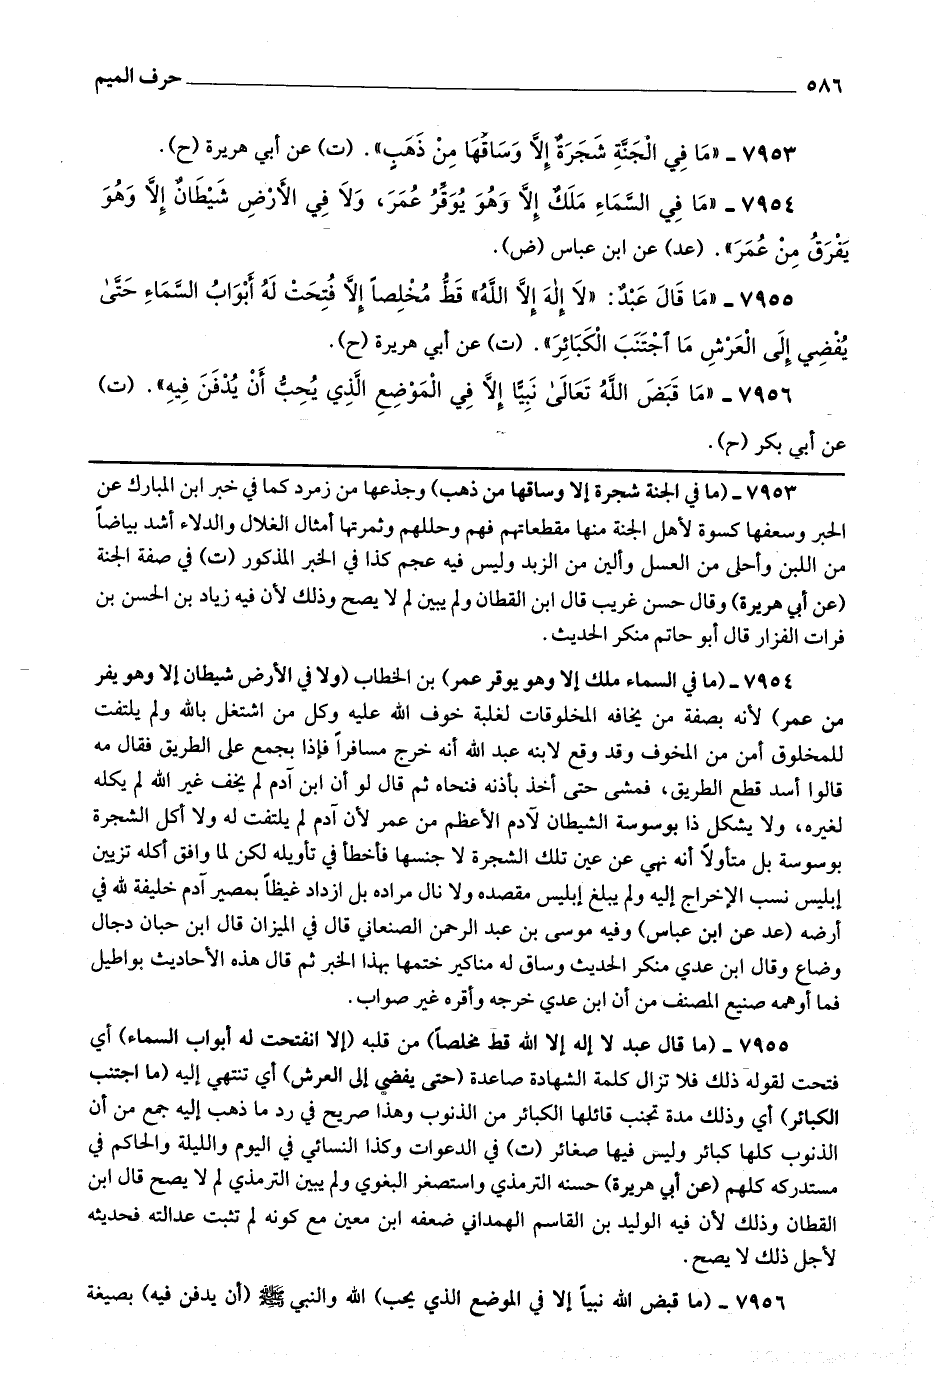 ٥٨٦ حرف الميم
٧٩٥٣ ـ «مَا فِي الْجَنَّةِ شَجَرَةٌ إِلاَّ وَسَاقُهَا مِنْ ذَهَبٍ». (ت) عن أبي هريرة (ح).
٧٩٥٤ ـ «مَا فِي السَّمَاءِ مَلَكٌ إِلاَّ وَهُوَ يُوَقِّرُ عُمَرَ، وَلَا فِي الأَرْضِ شَيْطَانٌ إِلاَّ وَهُوَ
يَفْرَقُ مِنْ عُمَرَ». (عد) عن ابن عباس (ض).
٧٩٥٥ ـ «مَا قَالَ عَبْدٌ: «لَا إِلٰهَ إِلاَّ اللَّهُ» قَطُّ مُخْلِصاً إِلاَّ فُتِحَتْ لَهُ أَبْوَابُ السَّمَاءِ حَتَّىٰ
يُفْضِي إِلَى الْعَرْشِ مَا ٱجْتَنَبَ الْكَبَائِرَ». (ت) عن أبي هريرة (ح).
٧٩٥٦ ـ «مَا قَبَضَ اللَّهُ تَعَالَىٰ نَبِيًّا إِلاَّ فِي الْمَوْضِعِ الَّذِي يُحِبُّ أَنْ يُدْفَنَ فِيهِ». (ت)
عن أبي بكر (ح).
٧٩٥٣ ـ (ما في الجنة شجرة إلا وساقها من ذهب) وجذعها من زمرد كما في خبر ابن المبارك عن
الحبر وسعفها كسوة لأهل الجنة منها مقطعاتهم فهم وحللهم وثمرتها أمثال الغلال والدلاء أشد بياضاً
من اللبن وأحلى من العسل وألين من الزبد وليس فيه عجم كذا في الخبر المذكور (ت) في صفة الجنة
(عن أبي هريرة) وقال حسن غريب قال ابن القطان ولم يبين لم لا يصح وذلك لأن فيه زياد بن الحسن بن
فرات الفزار قال أبو حاتم منكر الحديث.
٧٩٥٤ ـ (ما في السماء ملك إلا وهو يوقر عمر) بن الخطاب (ولا في الأرض شيطان إلا وهو يفر
من عمر) لأنه بصفة من يخافه المخلوقات لغلبة خوف الله عليه وكل من اشتغل بالله ولم يلتفت
للمخلوق أمن من المخوف وقد وقع لابنه عبد الله أنه خرج مسافراً فإذا بجمع على الطريق فقال مه
قالوا أسد قطع الطريق، فمشى حتى أخذ بأذنه فنحاه ثم قال لو أن ابن آدم لم يخف غير الله لم يكله
لغيره، ولا يشكل ذا بوسوسة الشيطان لآدم الأعظم من عمر لأن آدم لم يلتفت له ولا أكل الشجرة
بوسوسة بل متأولاً أنه نهي عن عين تلك الشجرة لا جنسها فأخطأ في تأويله لكن لما وافق أكله تزيين
إبليس نسب الإخراج إليه ولم يبلغ إبليس مقصده ولا نال مراده بل ازداد غيظاً بمصير آدم خليفة لله في
أرضه (عد عن ابن عباس) وفيه موسى بن عبد الرحمن الصنعاني قال في الميزان قال ابن حبان دجال
وضاع وقال ابن عدي منكر الحديث وساق له مناكير ختمها بهذا الخبر ثم قال هذه الأحاديث بواطيل
فما أوهمه صنيع المصنف من أن ابن عدي خرجه وأقره غير صواب.
٧٩٥٥ ـ (ما قال عبد لا إله إلا الله قط مخلصاً) من قلبه (إلا انفتحت له أبواب السماء) أي
فتحت لقوله ذلك فلا تزال كلمة الشهادة صاعدة (حتى يفضي إلى العرش) أي تنتهي إليه (ما اجتنب
الكبائر) أي وذلك مدة تجنب قائلها الكبائر من الذنوب وهذا صريح في رد ما ذهب إليه جمع من أن
الذنوب كلها كبائر وليس فيها صغائر (ت) في الدعوات وكذا النسائي في اليوم والليلة والحاكم في
مستدركه كلهم (عن أبي هريرة) حسنه الترمذي واستصغر البغوي ولم يبين الترمذي لم لا يصح قال ابن
القطان وذلك لأن فيه الوليد بن القاسم الهمداني ضعفه ابن معين مع كونه لم تثبت عدالته فحديثه
لأجل ذلك لا يصح.
٧٩٥٦ ـ (ما قبض الله نبياً إلا في الموضع الذي يحب) الله والنبي ﷺ (أن يدفن فيه) بصيغة